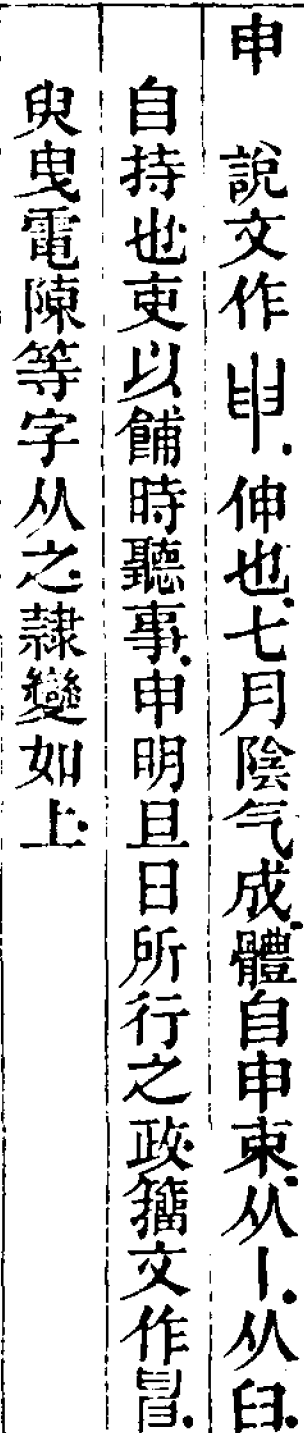 申 說文作𦥔伸也七月陰气成體自申束从丨从𦥑
自持也吏以餔時聽事申明旦日所行之政籀文作𢑚
臾曳電陳等字从之隷變如上